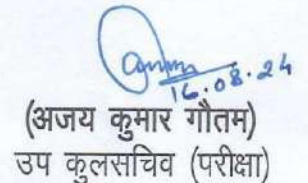 16.08.24
(अजय कुमार गौतम)
उप कुलसचिव (परीक्षा)